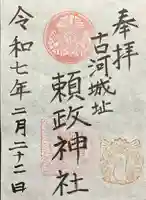 奉拝
古河城址
頼政神社
令和七年二月二十二日